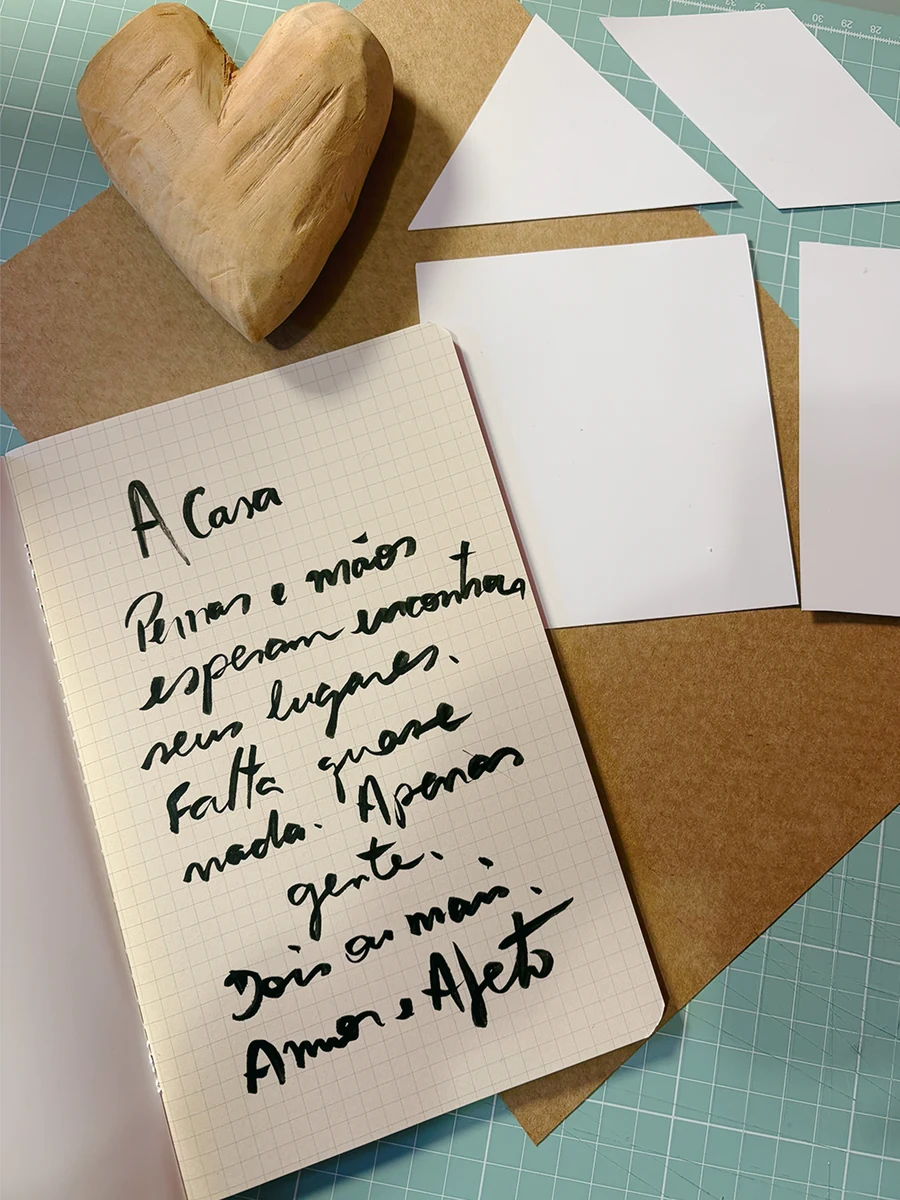 32 30 29 28
A Casa
Pernas e mãos
esperam encontrar
seus lugares.
Falta quase
nada. Apenas
gente.
Dois ou mais.
Amor e Afeto